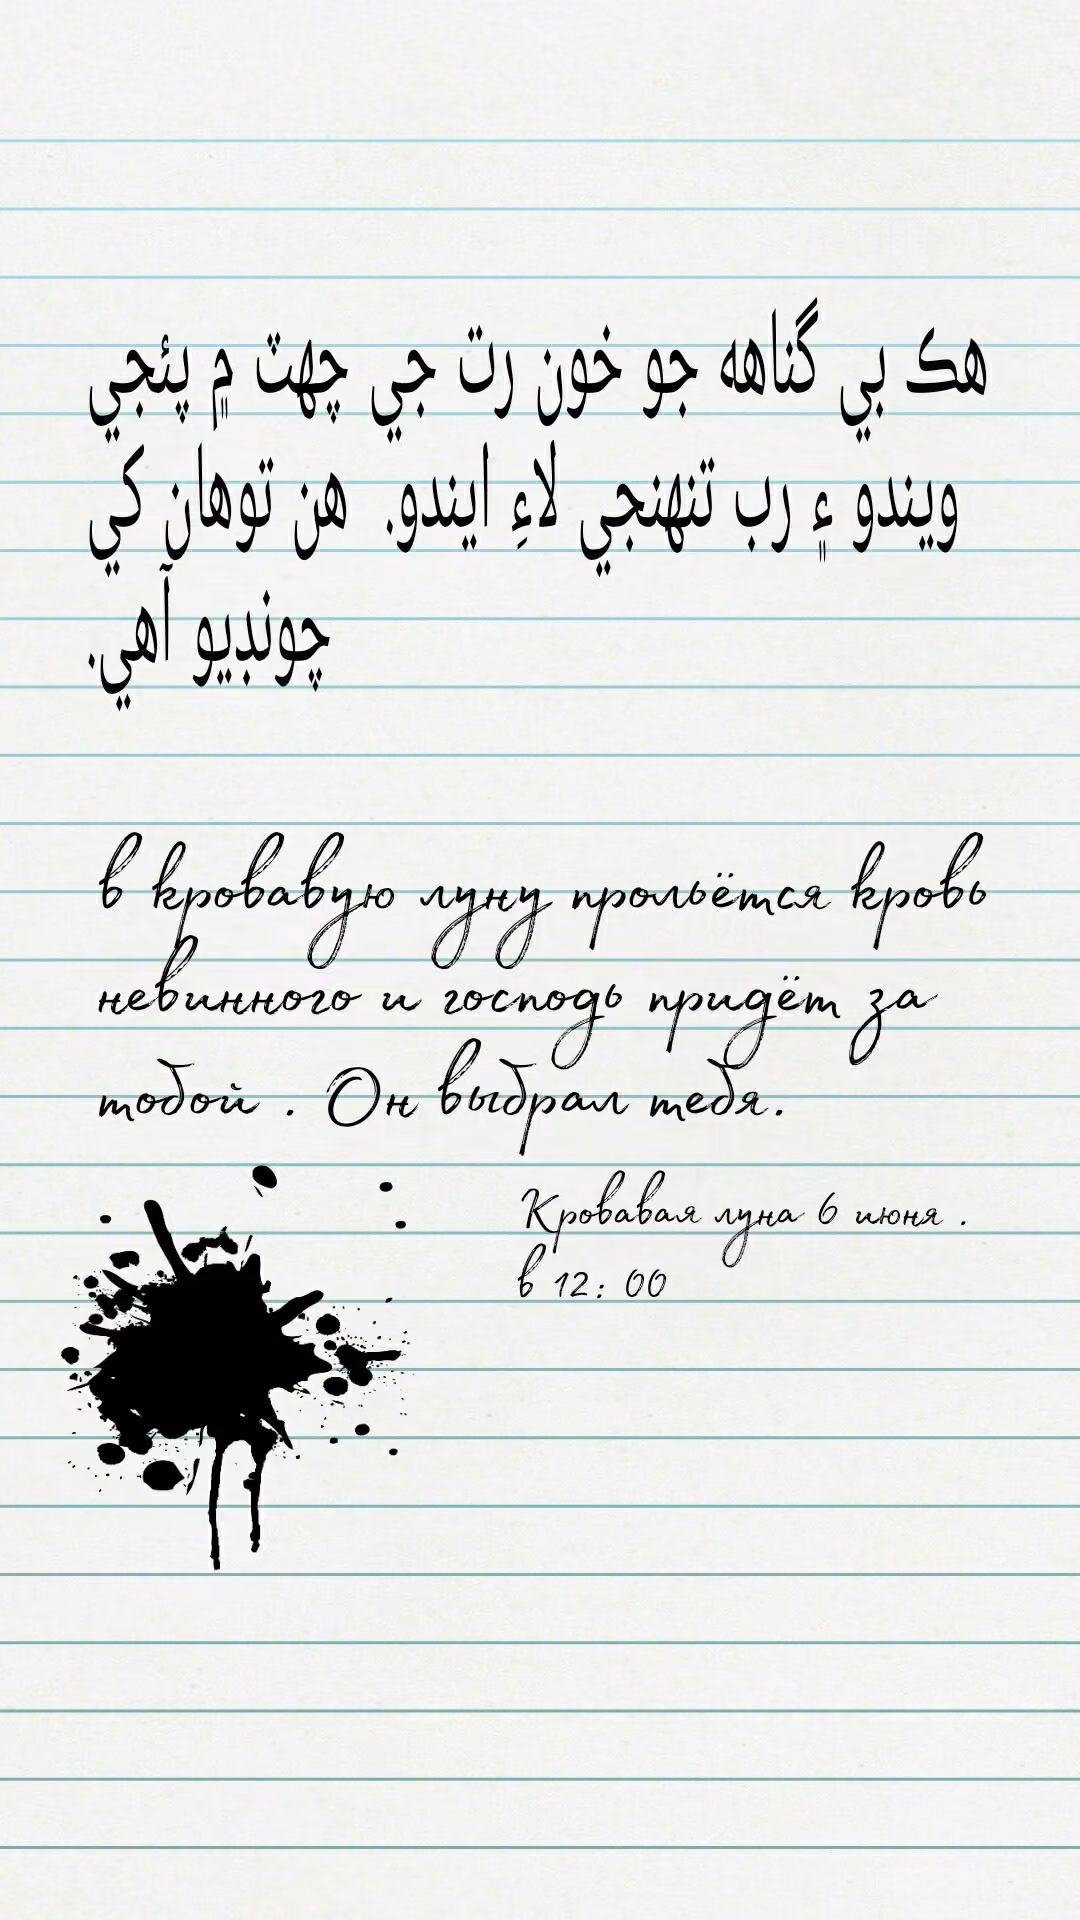 هڪ بي گناهه جو خون رت جي ڇهٽ ۾ پئجي
ويندو ۽ رب تنهنجي لاءِ ايندو. هن توهان کي
چونڊيو آهي.
в кровавую луну прольётся кровь
невинного и господь придёт за
тобой . Он выбрал тебя.
Кровавая луна 6 июня .
в 12: 00